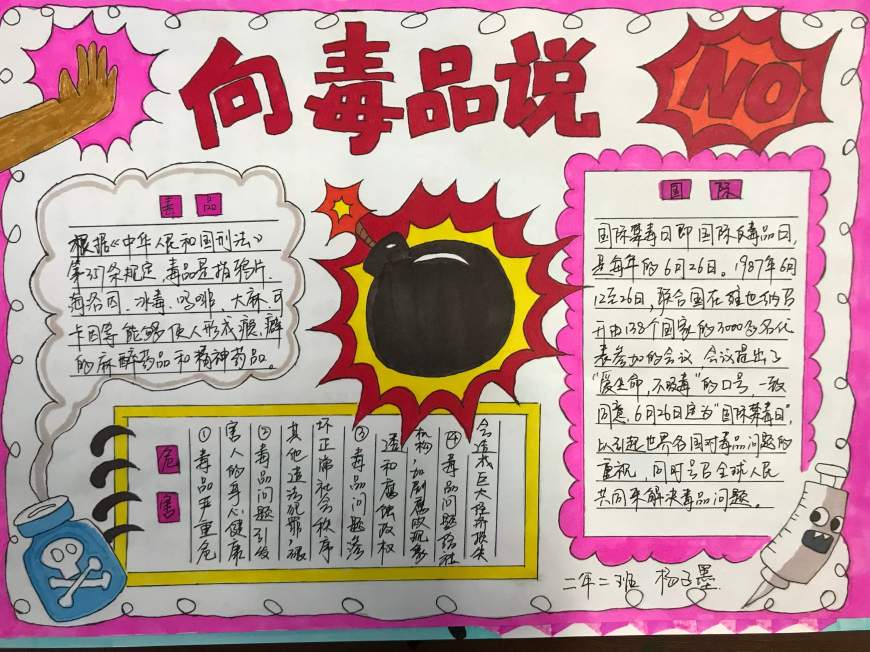 向毒品说
NO
毒品
根据《中华人民和国刑法》
第357条规定,毒品是指鸦片、
海洛因、冰毒、吗啡、大麻、可
卡因等能够使人形成瘾、癖
的麻醉药品和精神药品。
国际
国际禁毒日即国际反毒品日,
是每年的6月26日。1987年6月
12至26日,联合国在维也纳召
开由138个国家的3000多名代
表参加的会议 会议提出了
“爱生命,不吸毒”的口号,一致
同意,6月26日定为“国际禁毒日”,
以引起世界各国对毒品问题的
重视,同时号召全球人民
共同来解决毒品问题。
危害
①毒品严重危
害人的身心健康
②毒品问题引发
其他违法犯罪,破
坏正常社会秩序
③毒品问题渗
透和腐蚀政权
机构,加剧腐败现象
④毒品问题给社
会造成巨大经济损失
二年二班 杨子墨